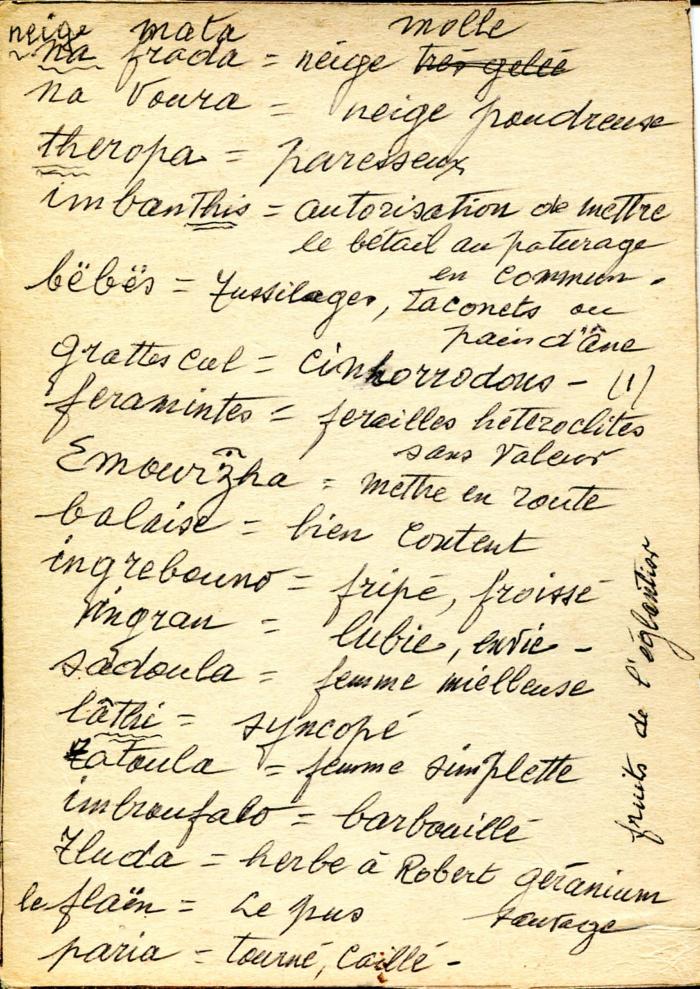 neige mata molle
na frada = neige très gelée
na voura = neige poudreuse
theropa = paresseux
imbanthis = autorisation de mettre
le bétail au paturage
en commun.
bëbës = Tussilages, taconets ou
pain d'âne
grattes cul = cinhorrodons - (1)
feramintes = ferailles héteroclites
sans valeur
Emourzha = mettre en route
balaise = bien content
ingrebouno = fripé, froissé
ringran = lubie, envie -
sadoula = femme mielleuse
lâthi = syncopé
tatoula = femme simplette
imbroufalo = barbouillé
Zluda = herbe à Robert géranium
sauvage
le flaën = Le pus
paria = tourné, caillé -
fruits de l'églantier